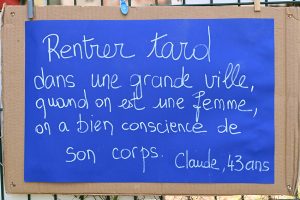 Rentrer tard
dans une grande ville,
quand on est une femme,
on a bien conscience de
son corps. Claude, 43 ans